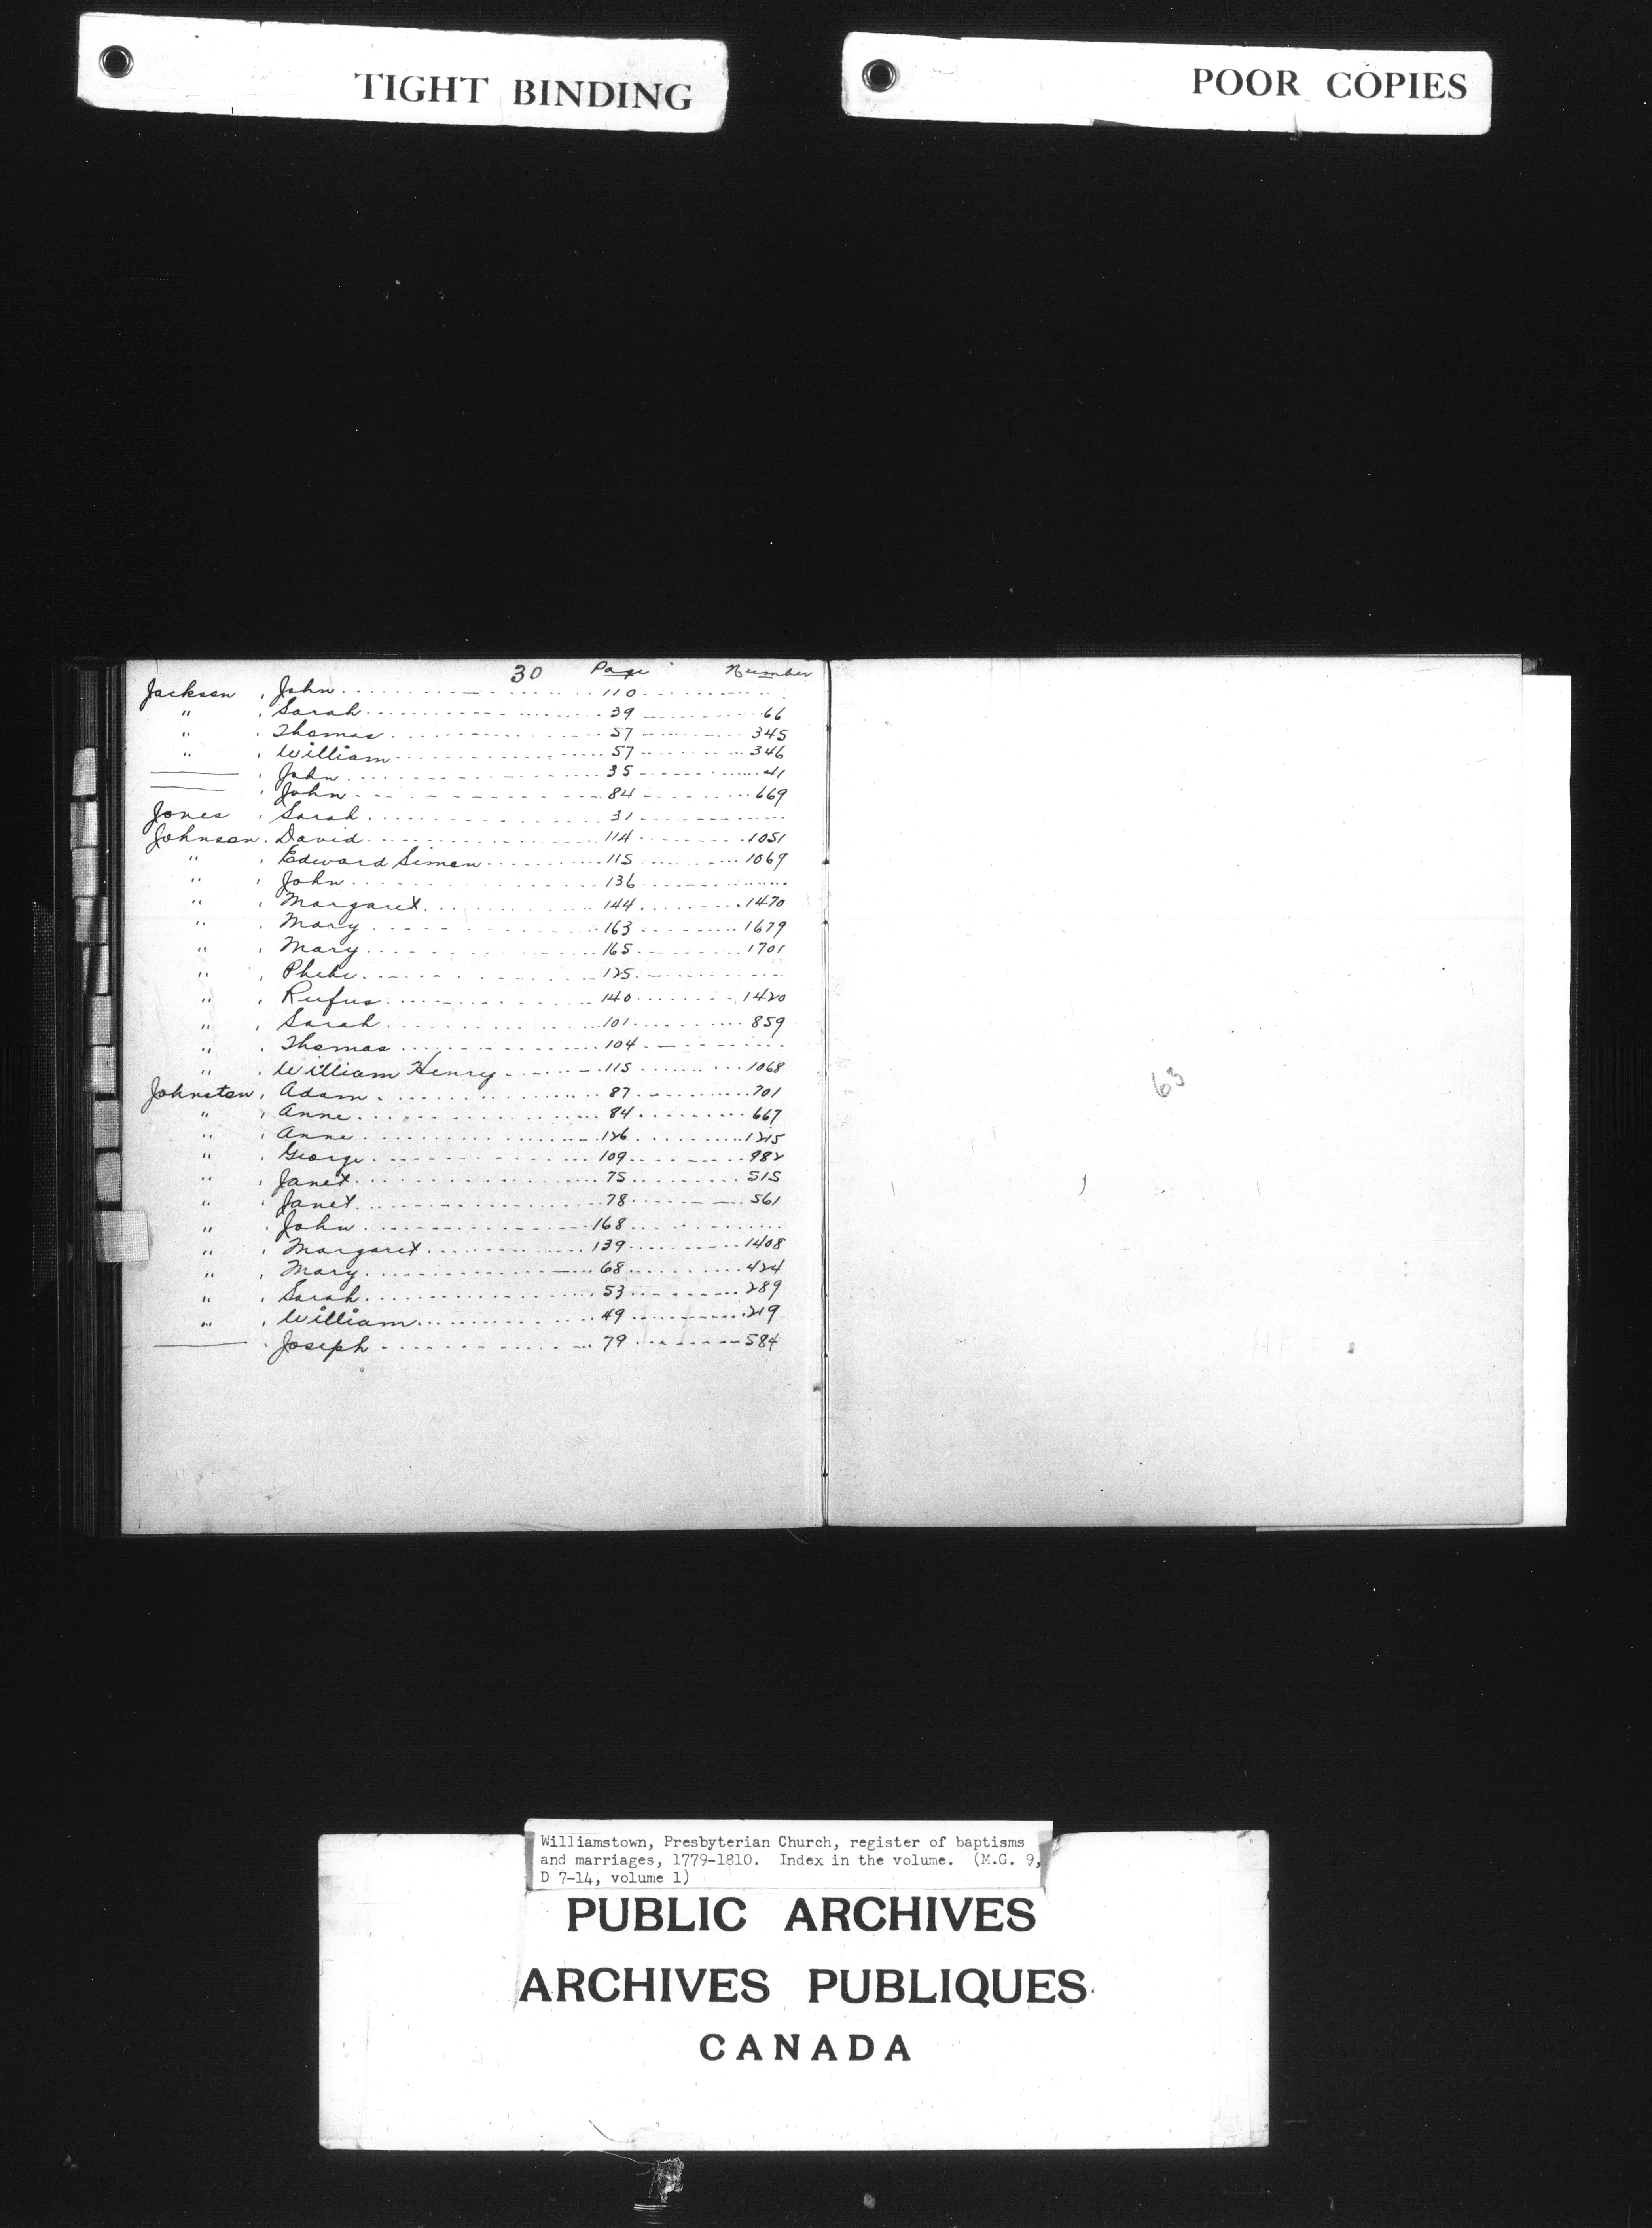 TIGHT BINDING
POOR COPIES
30 Page Number
Jackson, John 110
" , Sarah 39 66
" , Thomas 57 345
" , William 57 346
——— , John 35 41
——— , John 84 669
Jones , Sarah 31
Johnson, David 114 1051
" , Edward Simon 115 1069
" , John 136
" , Margaret 144 1470
" , Mary 163 1679
" , Mary 165 1701
" , Phebe 125
" , Rufus 140 1420
" , Sarah 101 859
" , Thomas 104
" , William Henry 115 1068
Johnston, Adam 87 701
" , Anne 84 667
" , Anne 126 1215
" , George 109 982
" , Janet 75 515
" , Janet 78 561
" , John 168
" , Margaret 139 1408
" , Mary 68 424
" , Sarah 53 289
" , William 49 219
——— , Joseph 79 584
63
Williamstown, Presbyterian Church, register of baptisms
and marriages, 1779-1810. Index in the volume. (M.G. 9,
D 7-14, volume 1)
PUBLIC ARCHIVES
ARCHIVES PUBLIQUES
CANADA